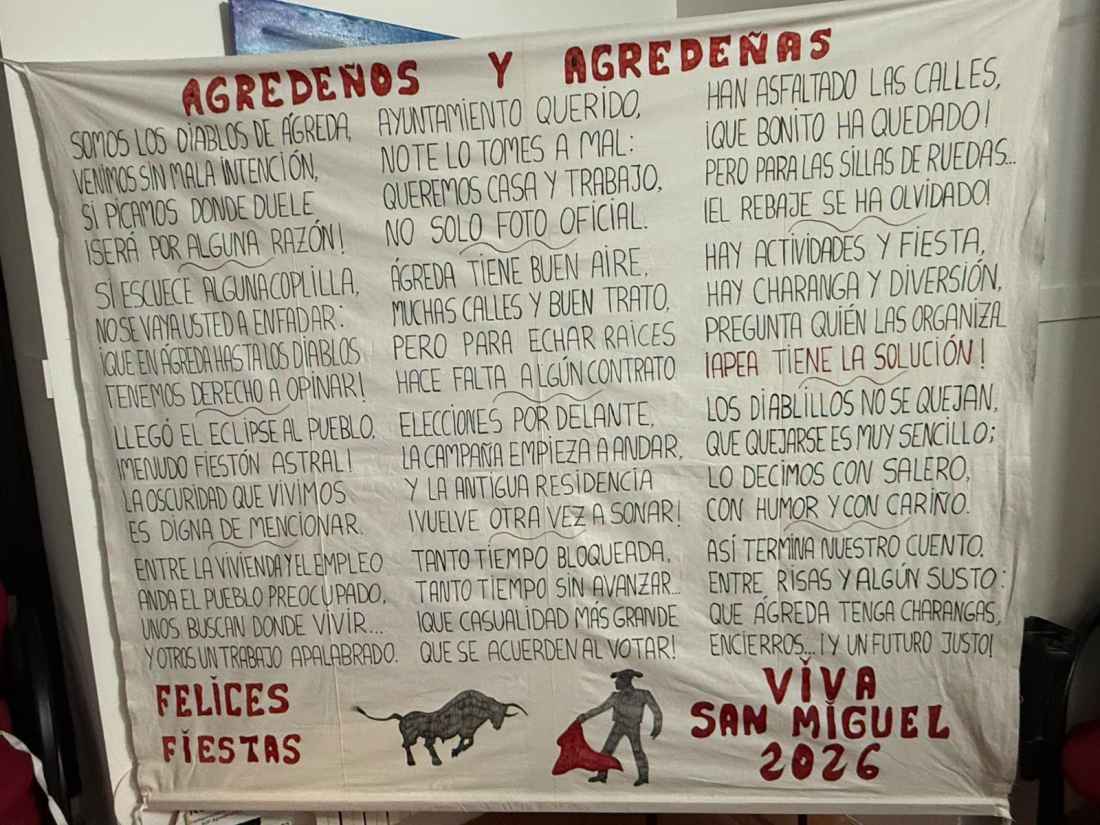 AGREDEÑOS Y AGREDEÑAS
SOMOS LOS DIABLOS DE ÁGREDA,
VENIMOS SIN MALA INTENCIÓN,
SI PICAMOS DONDE DUELE
¡SERÁ POR ALGUNA RAZÓN!
SI ESCUECE ALGUNA COPLILLA,
NO SE VAYA USTED A ENFADAR:
¡QUE EN ÁGREDA HASTA LOS DIABLOS
TENEMOS DERECHO A OPINAR!
LLEGÓ EL ECLIPSE AL PUEBLO,
¡MENUDO FIESTÓN ASTRAL!
LA OSCURIDAD QUE VIVIMOS
ES DIGNA DE MENCIONAR.
ENTRE LA VIVIENDA Y EL EMPLEO
ANDA EL PUEBLO PREOCUPADO,
UNOS BUSCAN DONDE VIVIR...
Y OTROS UN TRABAJO APALABRADO.
AYUNTAMIENTO QUERIDO,
NO TE LO TOMES A MAL:
QUEREMOS CASA Y TRABAJO,
NO SOLO FOTO OFICIAL.
ÁGREDA TIENE BUEN AIRE,
MUCHAS CALLES Y BUEN TRATO,
PERO PARA ECHAR RAICES
HACE FALTA ALGÚN CONTRATO
ELECCIONES POR DELANTE,
LA CAMPAÑA EMPIEZA A ANDAR,
Y LA ANTIGUA RESIDENCIA
¡VUELVE OTRA VEZ A SONAR!
TANTO TIEMPO BLOQUEADA,
TANTO TIEMPO SIN AVANZAR...
¡QUE CASUALIDAD MÁS GRANDE
QUE SE ACUERDEN AL VOTAR!
HAN ASFALTADO LAS CALLES,
¡QUE BONITO HA QUEDADO!
PERO PARA LAS SILLAS DE RUEDAS...
¡EL REBAJE SE HA OLVIDADO!
HAY ACTIVIDADES Y FIESTA,
HAY CHARANGA Y DIVERSIÓN,
PREGUNTA QUIÉN LAS ORGANIZA
¡APEA TIENE LA SOLUCIÓN!
LOS DIABLILLOS NO SE QUEJAN,
QUE QUEJARSE ES MUY SENCILLO;
LO DECIMOS CON SALERO,
CON HUMOR Y CON CARIÑO.
ASÍ TERMINA NUESTRO CUENTO.
ENTRE RISAS Y ALGÚN SUSTO:
QUE ÁGREDA TENGA CHARANGAS,
ENCIERROS... ¡Y UN FUTURO JUSTO!
FELICES
FIESTAS
VIVA
SAN MIGUEL
2026